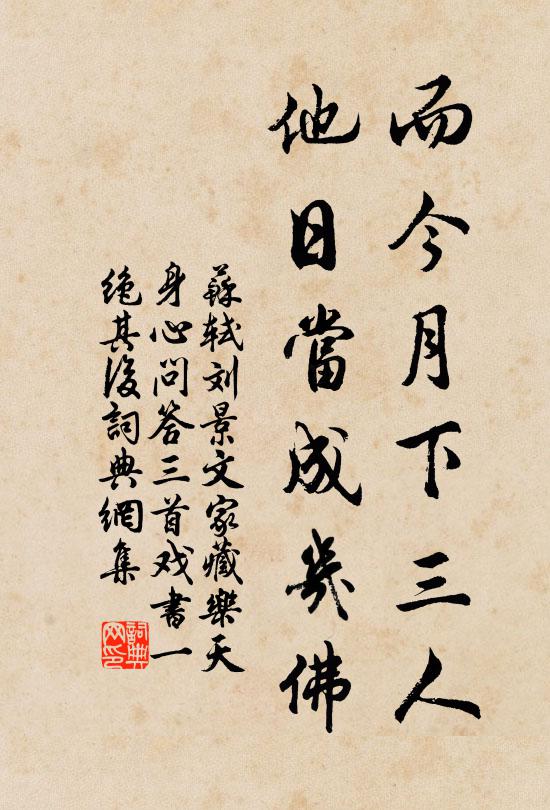 而今月下三人
他日當成幾佛
蘇軾刘景文家藏樂天
身心问答三首戏書一
絶其後詞典網集
詞典
网印